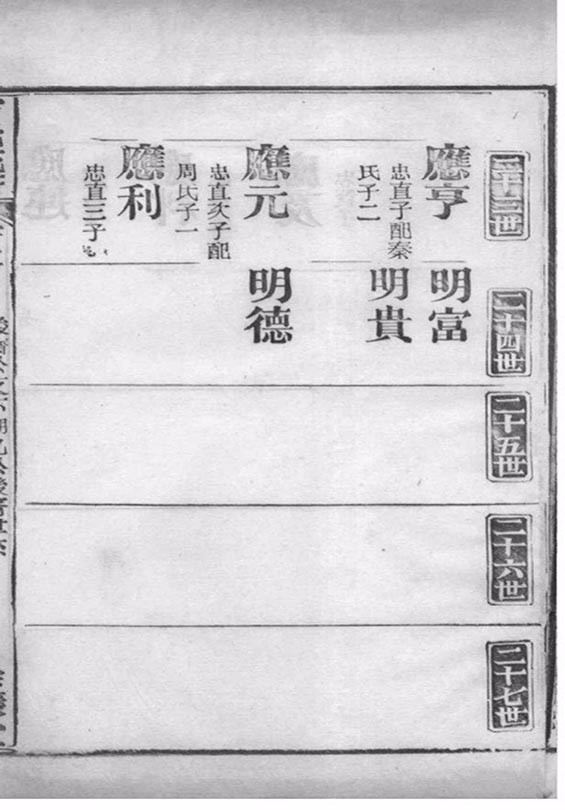 二十三世
應亨
忠直子配秦
氏子二
應元
忠直次子配
周氏子一
應利
忠直三子
二十四世
明富
明貴
明德
二十五世
二十六世
二十七世